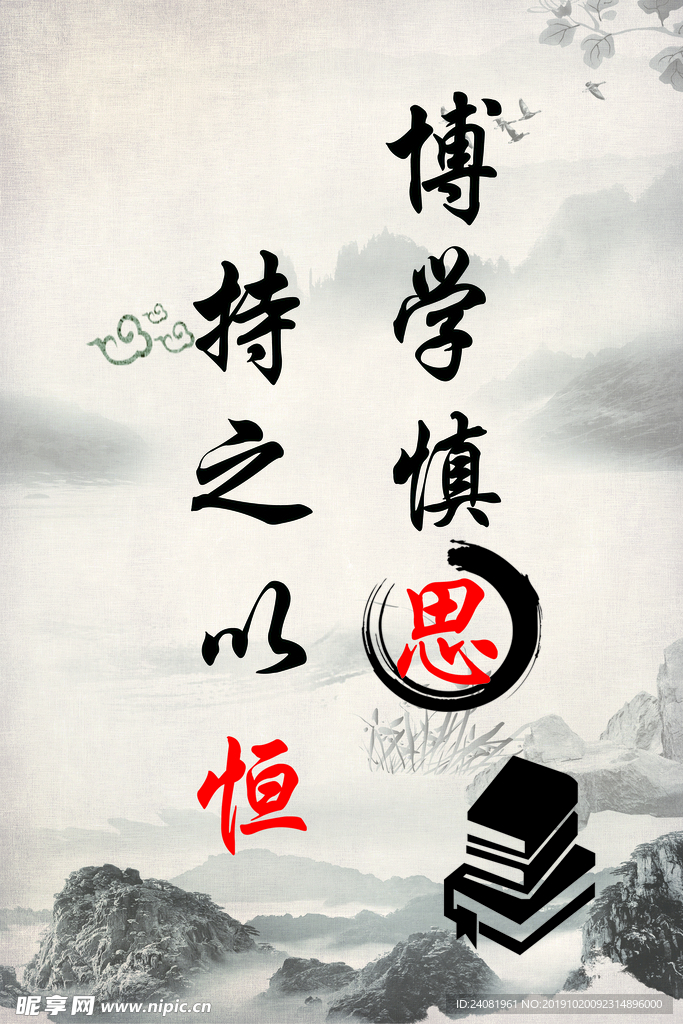 博学慎思
持之以恒
昵享网 www.nipic.cn
ID:24081961 NO:20191020092314896000